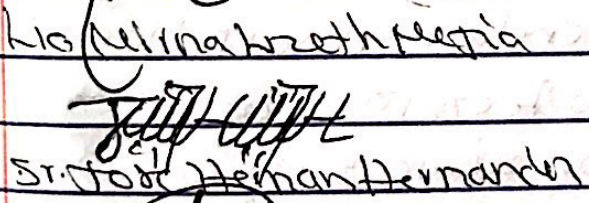 Lic Mirna Lizeth Mejia
Sr. Jose Hernan Hernandez